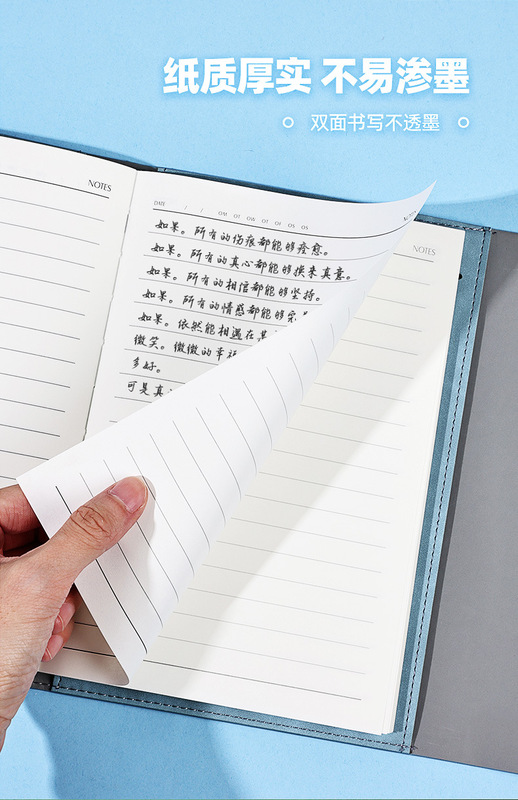 纸质厚实 不易渗墨
双面书写不透墨
NOTES
DATE / / OM OT OW OT OF OS OS
NOTES
如果。所有的伤痕都能够痊愈。
如果。所有的真心都能够换来真意。
如果。所有的相信都能够坚持。
如果。所有的情感都能够完
如果。依然能相遇在某
微笑。微微的幸福
多好。
可是真